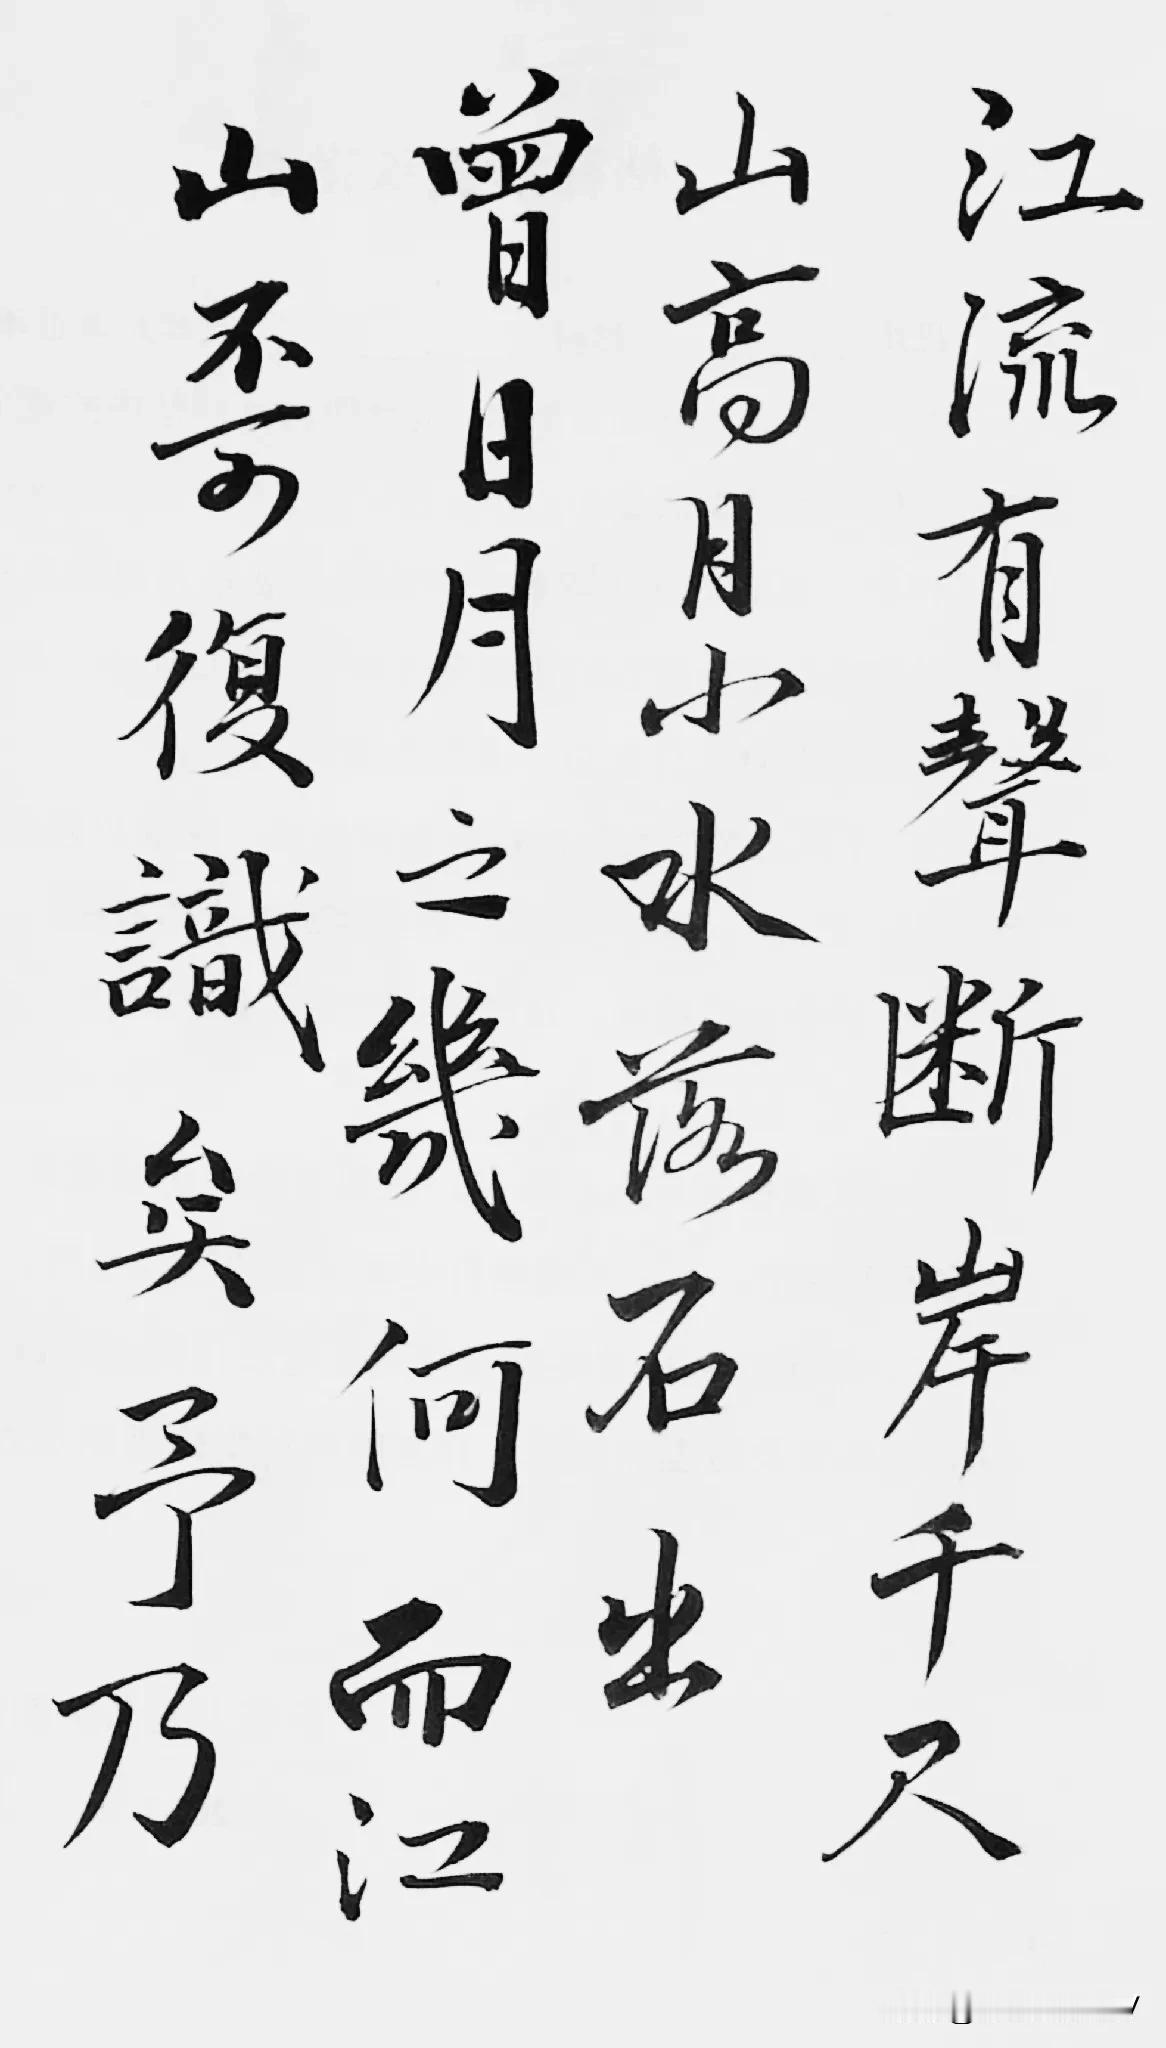 江流有聲断岸千尺
山高月小水落石出
曾日月之幾何而江
山不可復識矣予乃